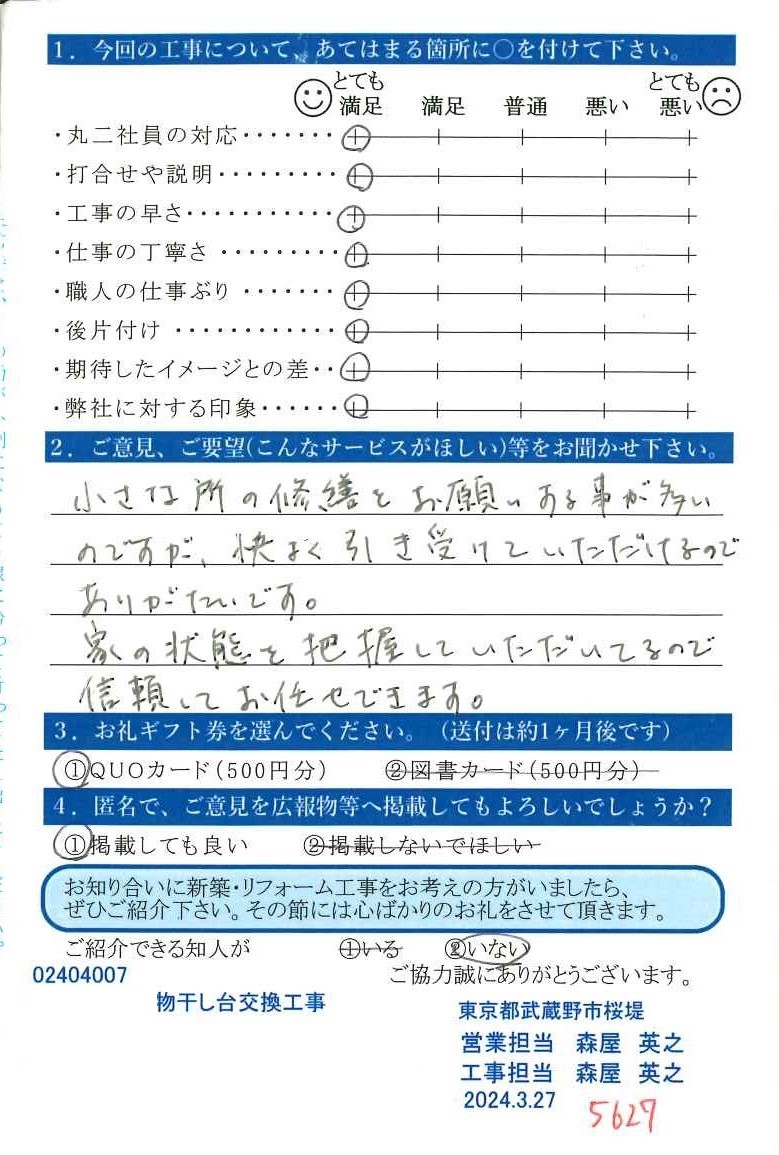 1．今回の工事について、あてはまる箇所に〇を付けて下さい。
とても満足 満足 普通 悪い とても悪い
・丸二社員の対応・・・・・・・
・打合せや説明・・・・・・・・・
・工事の早さ・・・・・・・・・・・
・仕事の丁寧さ・・・・・・・・・
・職人の仕事ぶり・・・・・・・
・後片付け・・・・・・・・・・・・
・期待したイメージとの差・・
・弊社に対する印象・・・・・・
2．ご意見、ご要望(こんなサービスがほしい)等をお聞かせ下さい。
小さな所の修繕をお願いする事が多い
のですが、快よく引き受けていただけるので
ありがたいです。
家の状態を把握していただいてるので
信頼してお任せできます。
3．お礼ギフト券を選んでください。（送付は約1ヶ月後です）
①QUOカード(500円分) ②図書カード(500円分)
4．匿名で、ご意見を広報物等へ掲載してもよろしいでしょうか？
①掲載しても良い ②掲載しないでほしい
お知り合いに新築・リフォーム工事をお考えの方がいましたら、
ぜひご紹介下さい。その節には心ばかりのお礼をさせて頂きます。
ご紹介できる知人が ①いる ②いない
02404007 ご協力誠にありがとうございます。
物干し台交換工事
東京都武蔵野市桜堤
営業担当 森屋 英之
工事担当 森屋 英之
2024.3.27
5627